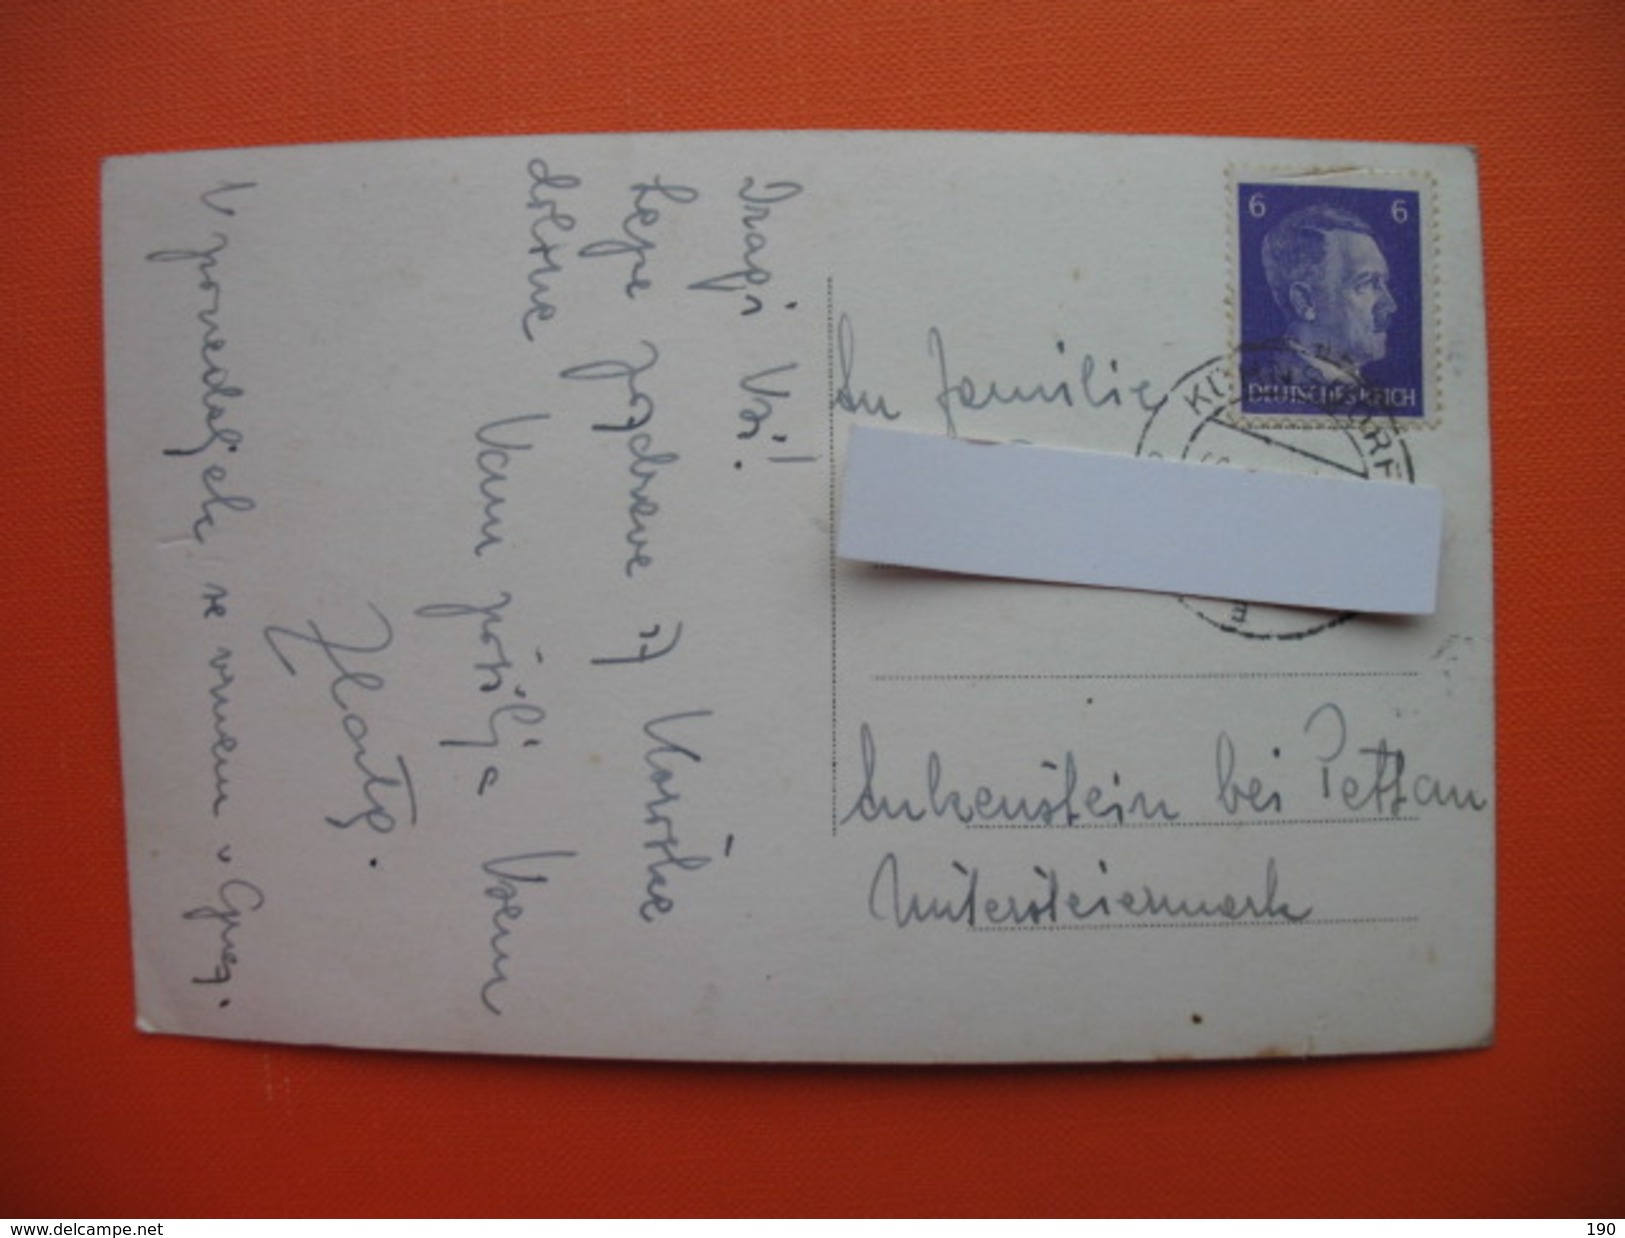 Dragi Vsi!
Lepe pozdrave iz Koroške
doline Vam pošilja Vsem
Zlata.
V ponedeljek se vrnem v Graz.
6 6
DEUTSCHES REICH
An Familie
Ankenstein bei Pettau
Untersteiermark
www.delcampe.net
190